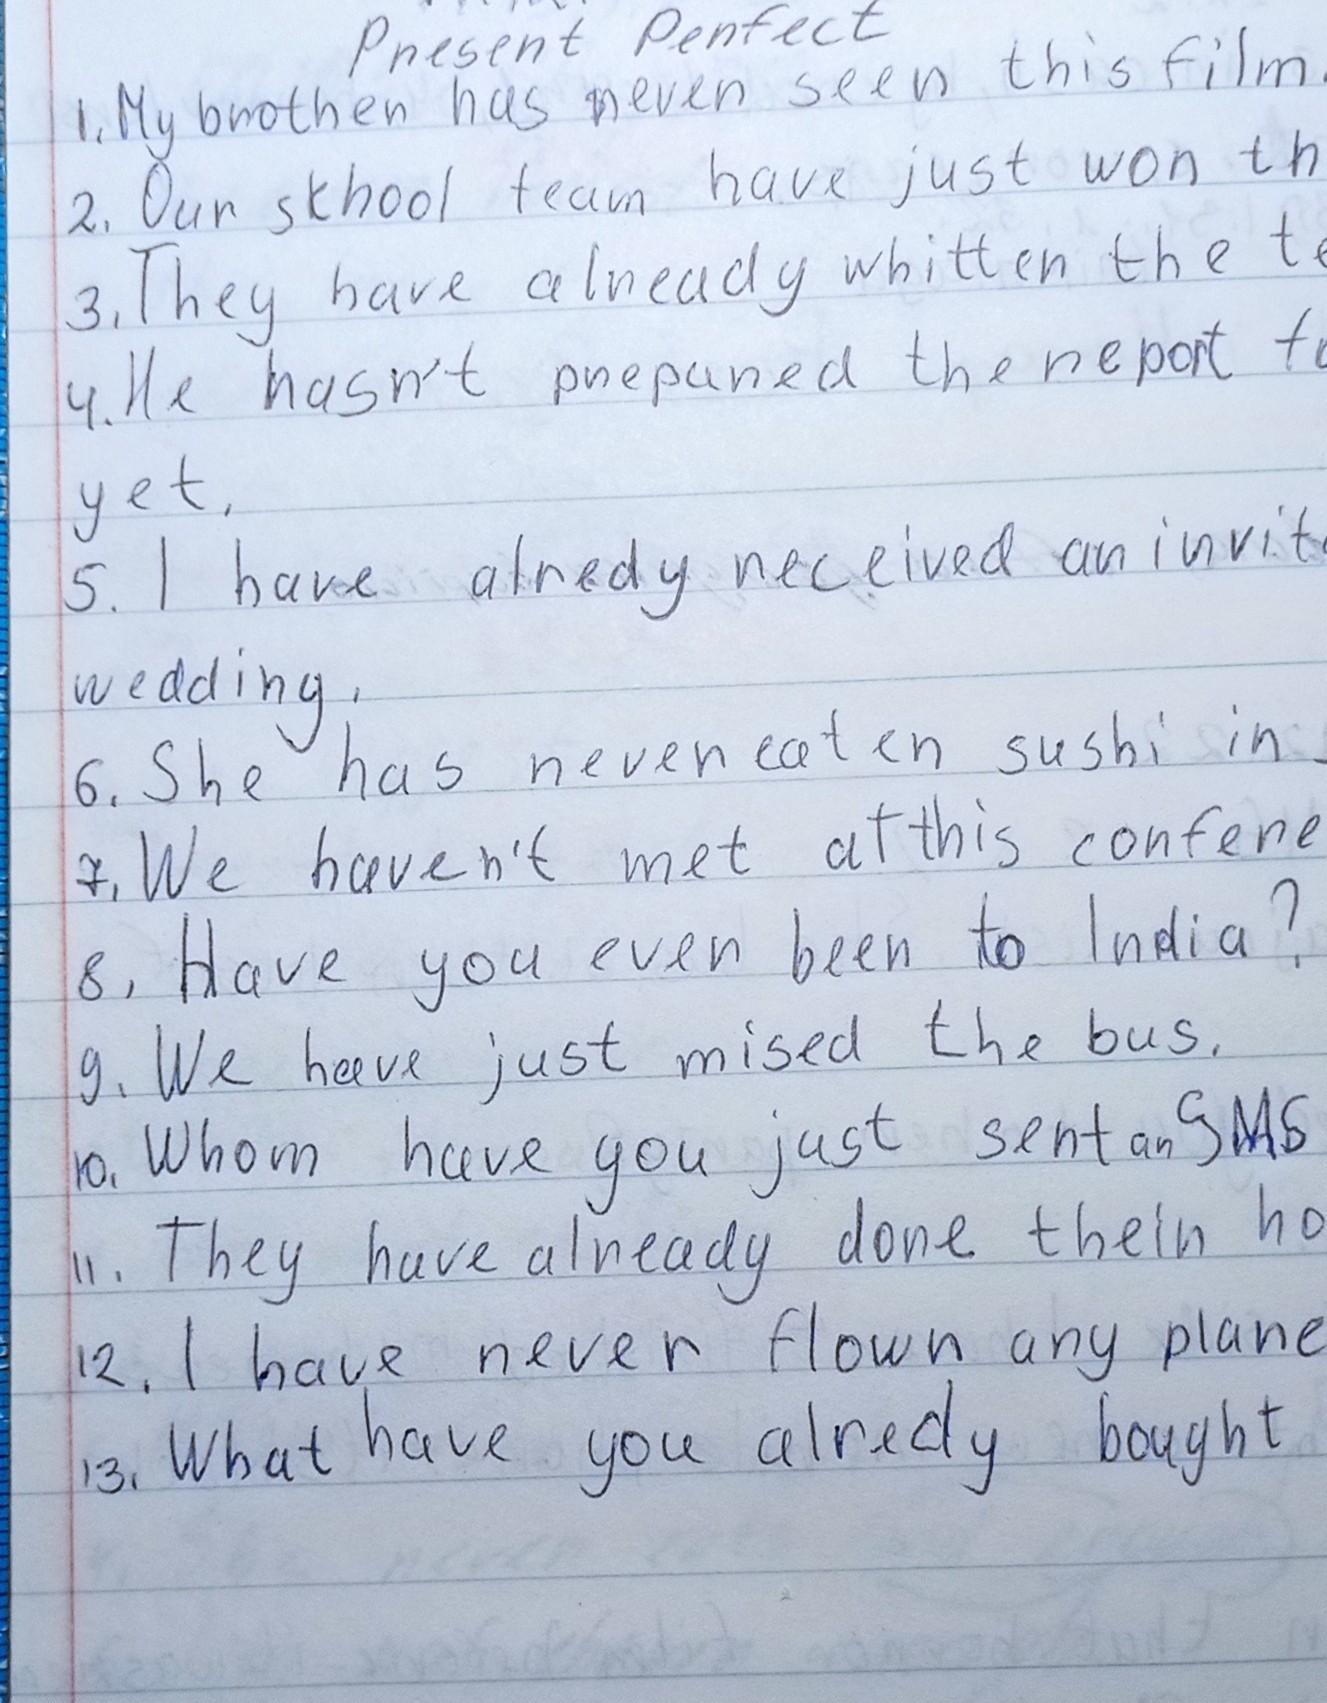 Present Perfect
1. My brother has never seen this film.
2. Our skhool team have just won th
3. They have already whitten the te
4. He hasn't prepared the report fo
yet.
5. I have alredy received an invita
wedding.
6. She has never eaten sushi in
7. We haven't met at this confere
8. Have you ever been to India?
9. We have just mised the bus.
10. Whom have you just sent an SMS
11. They have already done their ho
12. I have never flown any plane
13. What have you alredy bought